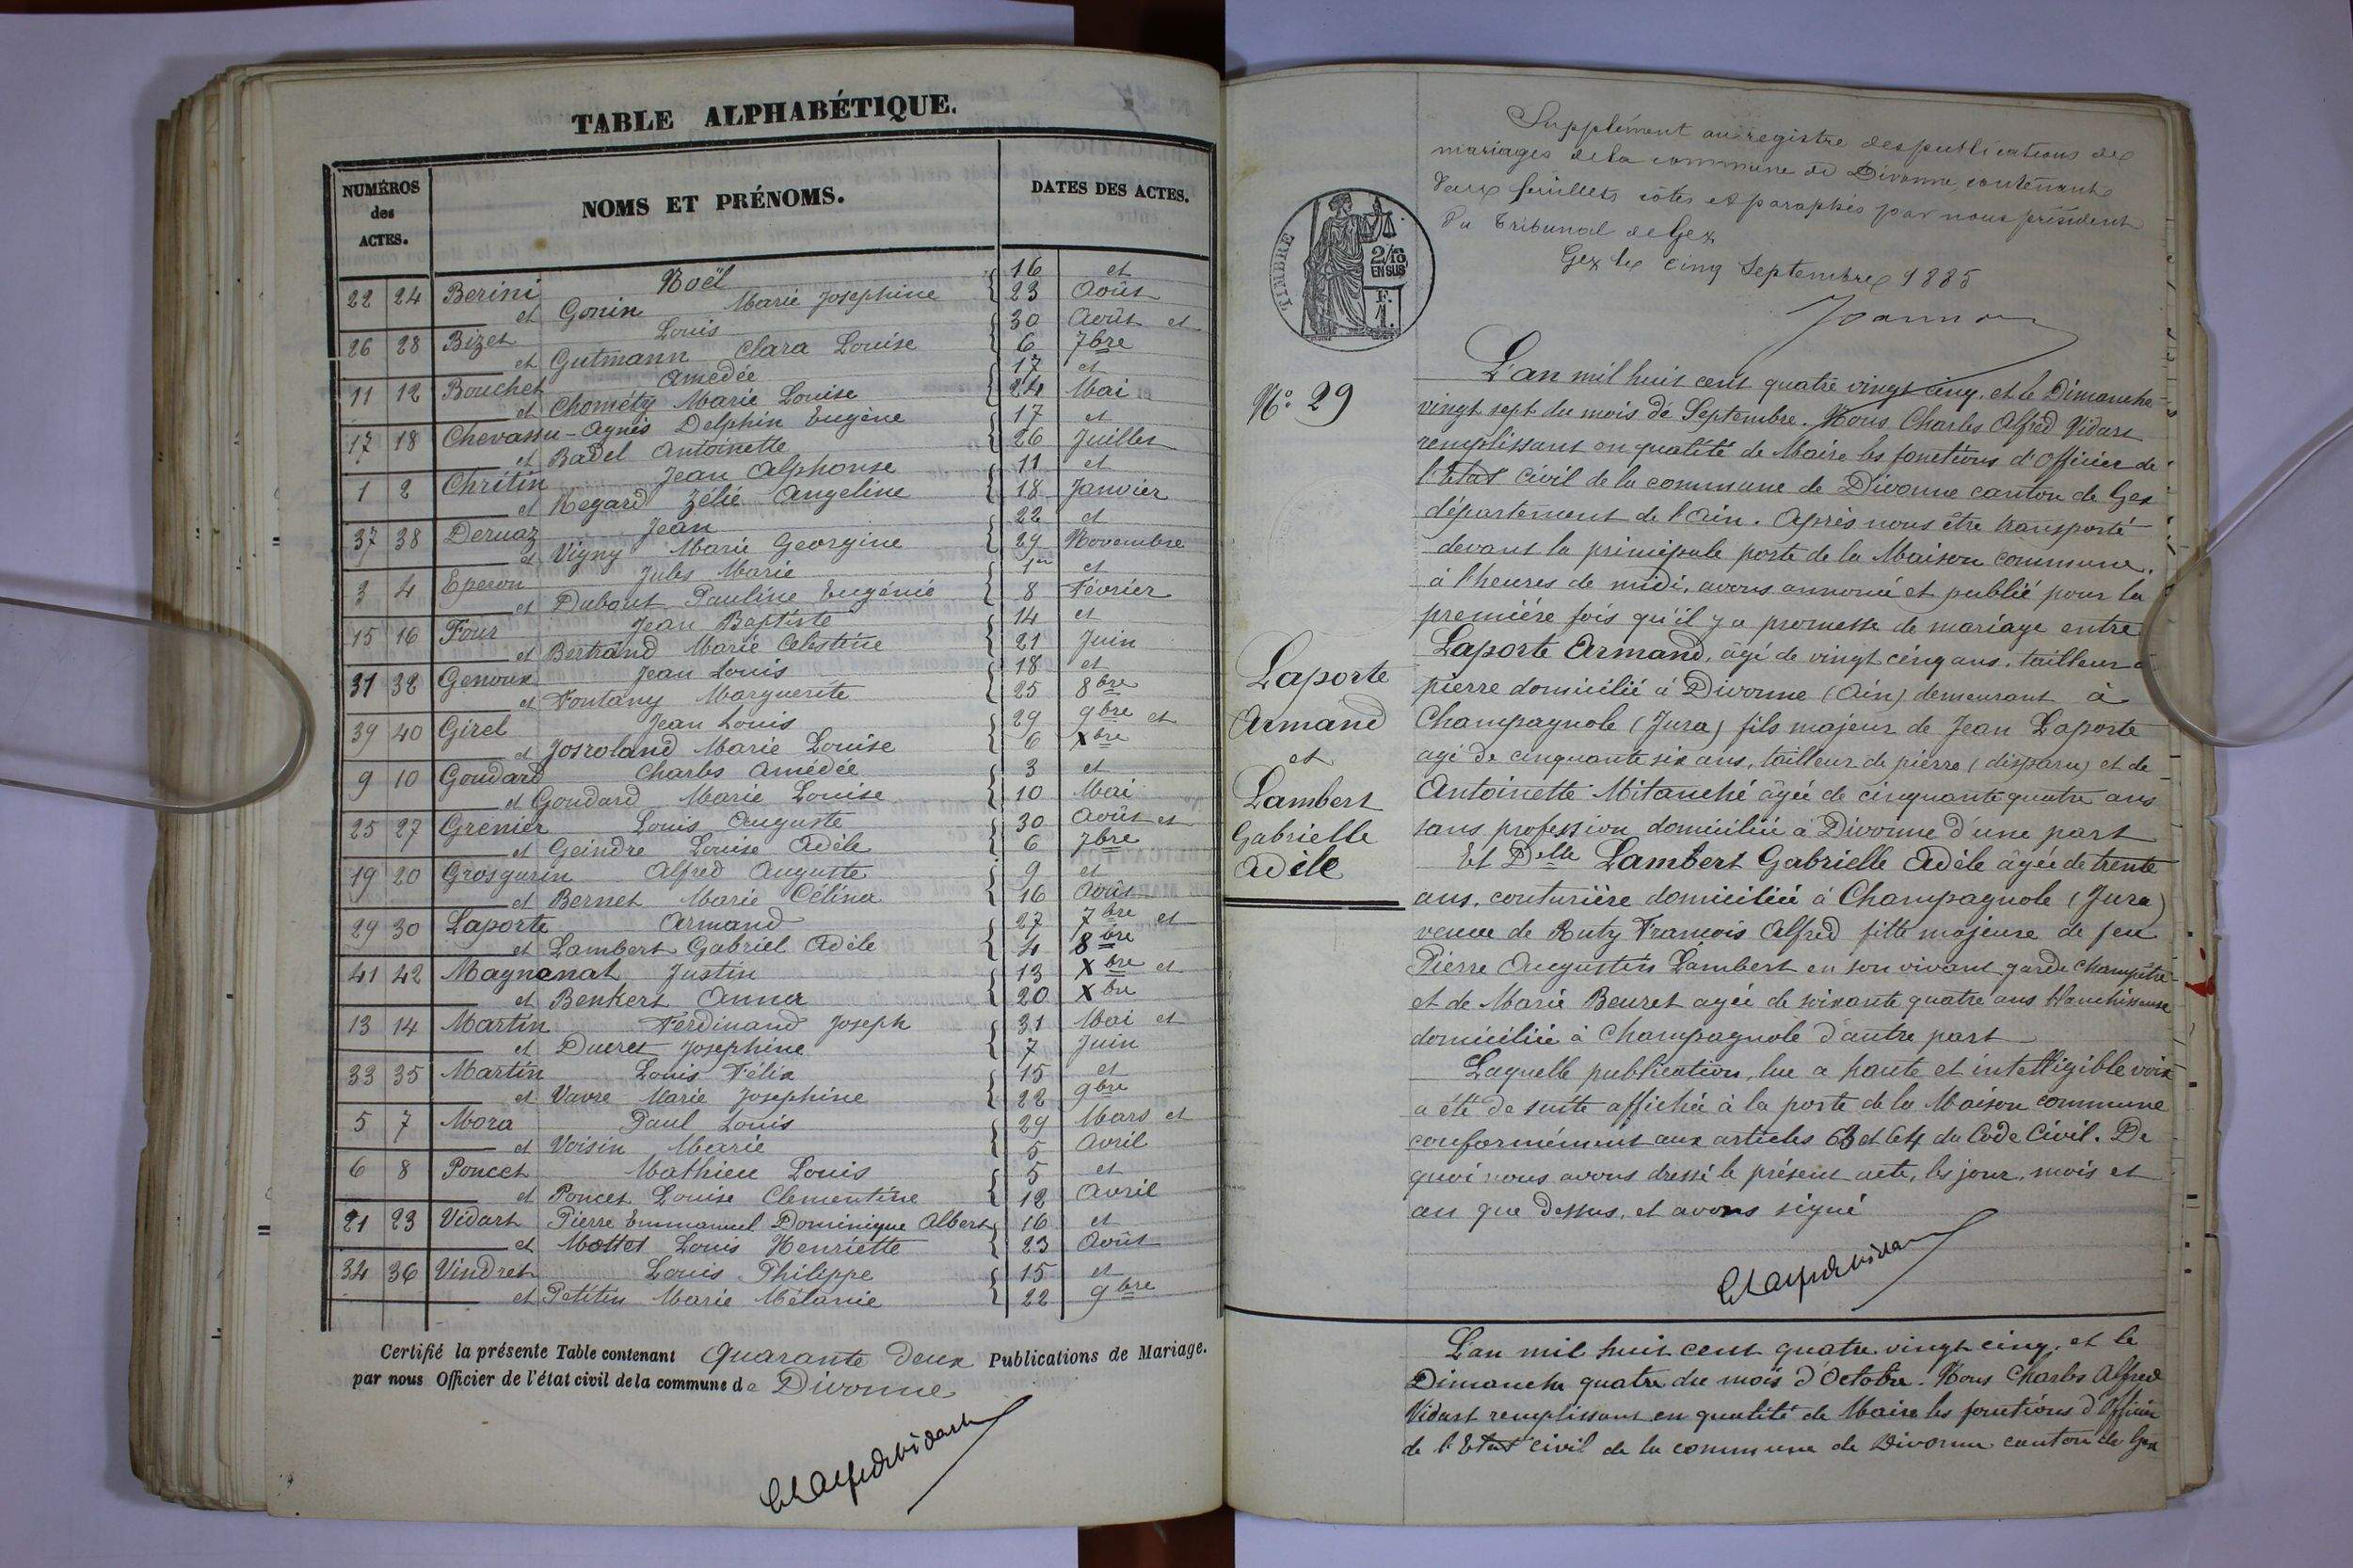 TABLE ALPHABÉTIQUE.
NUMÉROS des ACTES.
NOMS ET PRÉNOMS.
DATES DES ACTES.
22 24 Berini Noël 16 et
et Gonin Marie Josephine 23 Août
26 28 Bizet Louis 30 Août et
et Gutmann Clara Louise 6 7bre
11 12 Bouchet Amedée 17 et
et Chométy Marie Louise 24 Mai
17 18 Chevassu-Agnès Delphin Eugène 17 et
et Badel Antoinette 26 Juillet
1 2 Chritin Jean Alphonse 11 et
et Regard Zélie Angeline 18 Janvier
37 38 Deruaz Jean 22 et
et Vigny Marie Georgine 29 Novembre
3 4 Eperon Jules Marie 1er et
et Dubout Pauline Eugénie 8 Février
15 16 Four Jean Baptiste 14 et
et Bertrand Marie Celestine 21 Juin
31 32 Genoux Jean Louis 18 et
et Fontany Marguerite 25 8bre
39 40 Girel Jean Louis 29 9bre et
et Josroland Marie Louise 6 Xbre
9 10 Goudard Charles Amédée 3 et
et Goudard Marie Louise 10 Mai
25 27 Grenier Louis Auguste 30 Août et
et Geindre Louise Adèle 6 7bre
19 20 Grosgurin Alfred Auguste 9 et
et Bernet Marie Célina 16 Août
29 30 Laporte Armand 27 7bre et
et Lambert Gabriel Adèle 4 8bre
41 42 Magnenat Justin 13 Xbre et
et Benkert Anna 20 Xbre
13 14 Martin Ferdinand Joseph 31 Mai et
et Ducret Josephine 7 Juin
33 35 Martin Louis Félix 15 et
et Vavre Marie Josephine 22 9bre
5 7 Mora Paul Louis 29 Mars et
et Voisin Marie 5 Avril
6 8 Poncet Mathieu Louis 5 et
et Poncet Louise Clementine 12 Avril
21 23 Vidart Pierre Emmanuel Dominique Albert 16 et
et Mottet Louis Henriette 23 Août
34 36 Vindret Louis Philippe 15 et
et Petitin Marie Mélanie 22 9bre
Certifié la présente Table contenant Quarante Deux Publications de Mariage.
par nous Officier de l'état civil de la commune de Divonne
Ch Alfred Vidart
Supplément au registre des publications de
mariages de la commune de Divonne, contenant
deux feuillets côtés et paraphés par nous président
du tribunal de Gex
Gex le cinq Septembre 1885
TIMBRE
2/10 EN SUS
F. 1.
N° 29
Laporte
Armand
et
Lambert
Gabrielle
Adèle
L'an mil huit cent quatre vingt cinq, et le Dimanche
vingt sept du mois de Septembre. Nous Charles Alfred Vidart
remplissant en qualité de Maire les fonctions d'Officier de
l'Etat civil de la commune de Divonne canton de Gex
département de l'Ain. Après nous être transporté
devant la principale porte de la Maison commune,
à l'heures de midi, avons annoncé et publié pour la
première fois qu'il y a promesse de mariage entre
Laporte Armand, âgé de vingt cinq ans, tailleur de
pierre domicilié à Divonne (Ain) demeurant à
Champagnole (Jura) fils majeur de Jean Laporte
agé de cinquante six ans, tailleur de pierre (disparu) et de
Antoinette Mitanché âgée de cinquante quatre ans
sans profession domiciliée à Divonne d'une part
Et Delle Lambert Gabrielle Adèle âgée de trente
ans, couturière domiciliée à Champagnole (Jura)
veuve de Ruty Francois Alfred fille majeure de feu
Pierre Augustin Lambert en son vivant garde champêtre
et de Marie Beuret agée de soixante quatre ans blanchisseuse
domiciliée à Champagnole d'autre part
Laquelle publication, lue a haute et intelligible voix
a été de suite affichée à la porte de la Maison commune
conformément aux articles 63 et 64 du Code Civil. De
quoi nous avons dressé le présent acte, les jour, mois et
an que dessus, et avons signé
Ch Alfred Vidart
L'an mil huit cent quatre vingt cinq, et le
Dimanche quatre du mois d'Octobre. Nous Charles Alfred
Vidart remplissant en qualité de Maire les fonctions d'Officier
de l'Etat civil de la commune de Divonne canton de Gex